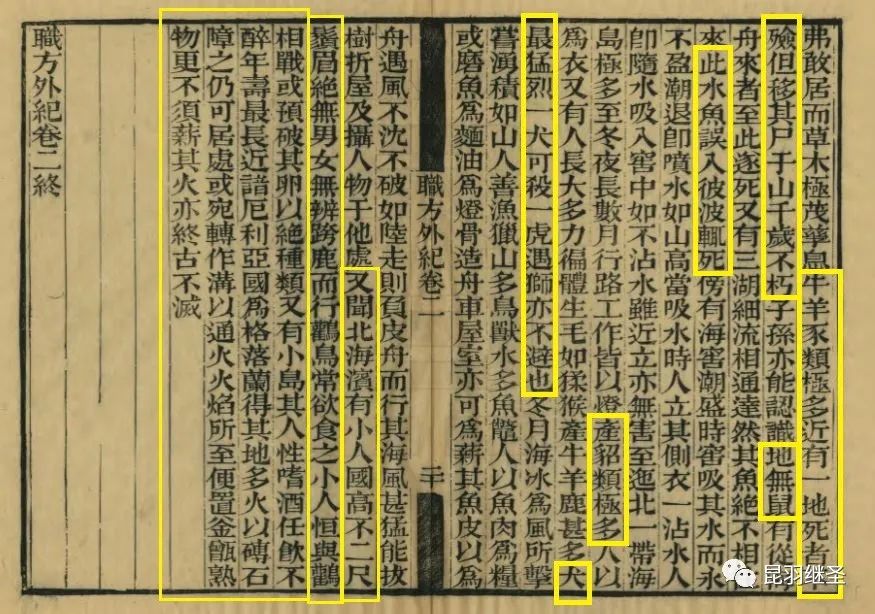 弗敢居而草木極茂華鳥牛羊豕類極多近有一地死者
殮但移其尸于山千歲不朽子孫亦能認識地無鼠有從
舟來者至此遂死又有三湖細流相通達然其魚絕不相
來此水魚誤入彼波輒死傍有海窖潮盛時窖吸其水而永
不盈潮退卽噴水如山高當吸水時人立其側衣一沾水人
卽隨水吸入窖中如不沾水雖近立亦無害至迤北一帶海
島極多至冬夜長數月行路工作皆以燈產貂類極多人以
爲衣又有人長大多力徧體生毛如猱猴產牛羊鹿甚多犬
最猛烈一犬可殺一虎遇獅亦不避也冬月海冰爲風所擊
嘗湧積如山人善漁獵山多鳥獸水多魚鼈人以魚肉爲糧
或磨魚爲麵油爲燈骨造舟車屋室亦可爲薪其魚皮以爲
職方外紀卷二
二十
舟遇風不沈不破如陸走則負皮舟而行其海風甚猛能拔
樹折屋及攝人物于他處又聞北海濱有小人國高不二尺
鬚眉絕無男女無辨跨鹿而行鸛鳥常欲食之小人恒與鸛
相戰或預破其卵以絕種類又有小島其人性嗜酒任飮不
醉年壽最長近諳厄利亞國爲格落蘭得其地多火以磚石
障之仍可居處或宛轉作溝以通火火焰所至便置釜甑熟
物更不須薪其火亦終古不滅
職方外紀卷二終
昆羽继圣